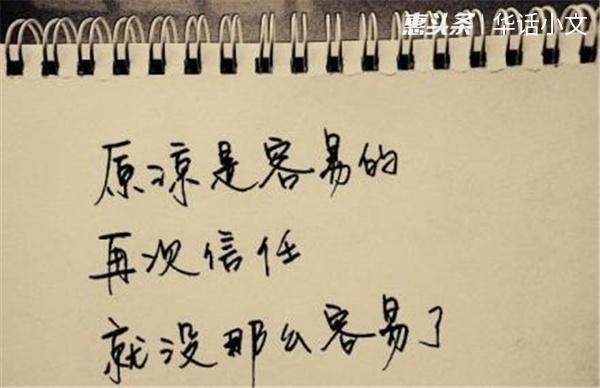 惠头条 华话小文
原凉是容易的
再次信任
就没那么容易了